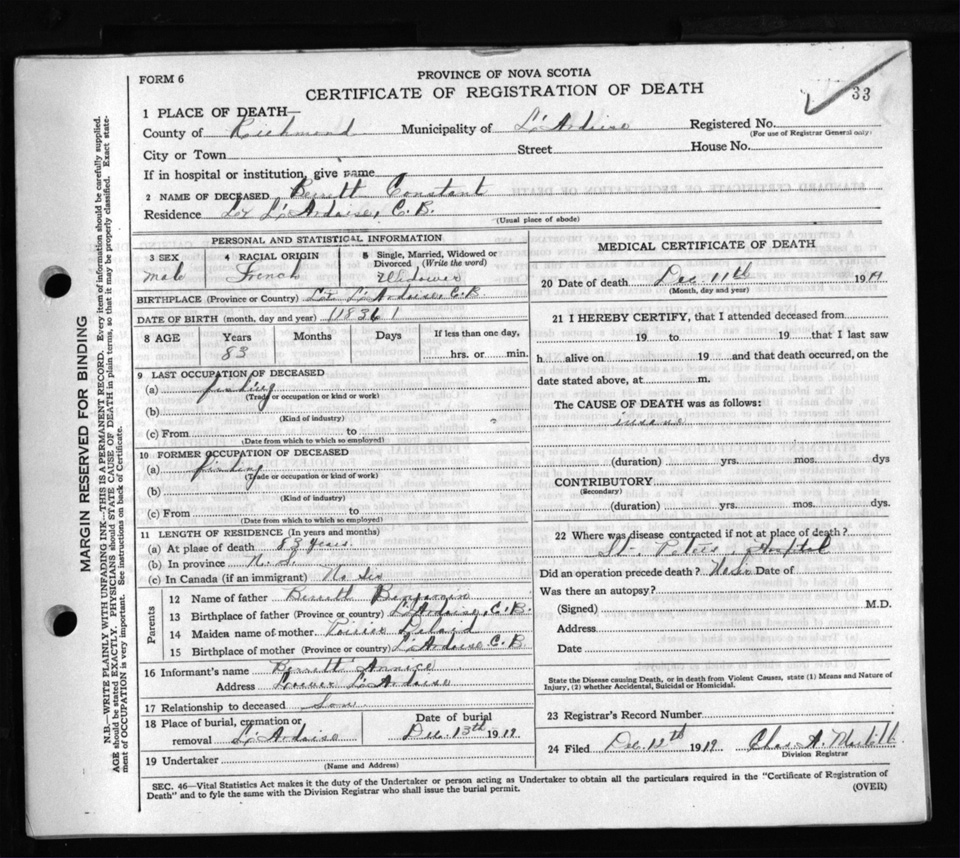 FORM 6
PROVINCE OF NOVA SCOTIA
CERTIFICATE OF REGISTRATION OF DEATH
33
1 PLACE OF DEATH—
County of Richmond Municipality of L'Ardoise Registered No.
(For use of Registrar General only)
City or Town Street House No.
If in hospital or institution, give name
2 NAME OF DECEASED Constant
Residence L'Ardoise, C.B.
(Usual place of abode)
PERSONAL AND STATISTICAL INFORMATION
3 SEX 4 RACIAL ORIGIN 5 Single, Married, Widowed or Divorced (Write the word)
Male French Widower
BIRTHPLACE (Province or Country) L'Ardoise, C.B.
DATE OF BIRTH (month, day and year) (1836)
8 AGE Years Months Days If less than one day,
83 hrs. or min.
9 LAST OCCUPATION OF DECEASED
(a) fishing
(Trade or occupation or kind or work)
(b)
(Kind of industry)
(c) From to
(Date from which to which so employed)
10 FORMER OCCUPATION OF DECEASED
(a) fishing
(Trade or occupation or kind or work)
(b)
(Kind of industry)
(c) From to
(Date from which to which so employed)
11 LENGTH OF RESIDENCE (In years and months)
(a) At plase of death 83 years.
(b) In province N.S.
(c) In Canada (if an immigrant)
Parents
12 Name of father Benjamin
13 Birthplace of father (Province or country) L'Ardoise, C.B.
14 Maiden name of mother
15 Birthplace of mother (Province or country) L'Ardoise C.B.
16 Informant's name
Address L'Ardoise
17 Relationship to deceased Son
18 Place of burial, cremation or removal L'Ardoise Date of burial Dec. 13th 1919
19 Undertaker
(Name and Address)
MEDICAL CERTIFICATE OF DEATH
20 Date of death Dec 11th 1919
(Month, day and year)
21 I HEREBY CERTIFY, that I attended deceased from
19 to 19 that I last saw
h alive on 19 and that death occurred, on the
date stated above, at m.
The CAUSE OF DEATH was as follows:
(duration) yrs. mos. dys
CONTRIBUTORY
(Secondary)
(duration) yrs. mos. dys.
22 Where was disease contracted if not at place of death?
St. Peters, Hospital
Did an operation precede death? Date of
Was there an autopsy?
(Signed) M.D.
Address
Date
State the Disease causing Death, or in death from Violent Causes, state (1) Means and Nature of
Injury, (2) whether Accidental, Suicidal or Homicidal.
23 Registrar's Record Number
24 Filed Dec. 12th 1919 Chas. A.
Division Registrar
SEC. 46—Vital Statistics Act makes it the duty of the Undertaker or person acting as Undertaker to obtain all the particulars required in the "Certificate of Registration of
Death" and to fyle the same with the Division Registrar who shall issue the burial permit.
(OVER)
MARGIN RESERVED FOR BINDING
N.B.—WRITE PLAINLY WITH UNFADING INK—THIS IS A PERMANENT RECORD. Every item of information should be carefully supplied.
AGE should be stated EXACTLY. PHYSICIANS should STATE CAUSE OF DEATH in plain terms, so that it may be properly classified. Exact state-
ment of OCCUPATION is very important. See instructions on back of Certificate.